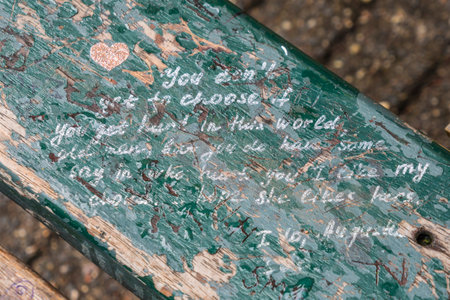 You don't
get to choose if
you get hurt in this world,
old man, but you do have some
say in who hurts you. I like my
choices. I hope she likes hers.
I lov Augustus